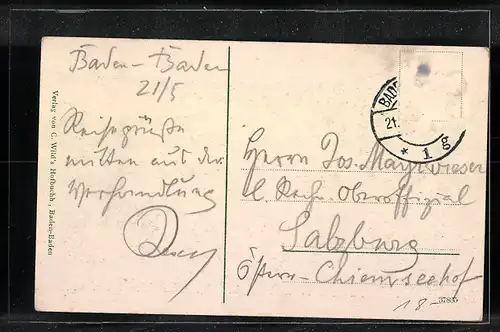 Baden-Baden
21/5
Reisegrüße
mitten aus der
Verhandlung
Verlag von C. Wild's Hofbuchh., Baden-Baden
BADE
21.
* 1 g
Herrn Jos. Mayrwieser
Rechn. Oberoffizial
Salzburg
Österr. Chiemseehof
18-
37835